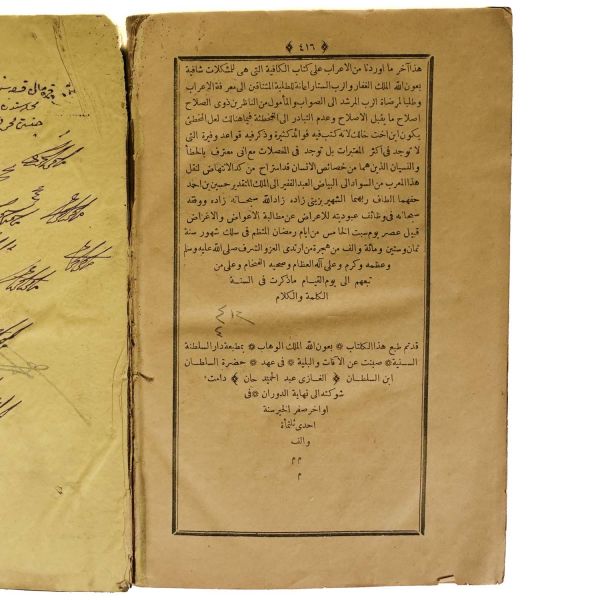 ﴿ ٤١٦ ﴾
هذا آخر ما اوردنا من الاعراب على كتاب الكافية التى هى للمشكلات شافية
بعون الله الغفار والرب الستار اعانة لطلبة المشتاقين الى معرفة الاعراب
وطلبا لمرضاة الرب المرشد الى الصواب والمأمول من الناظرين ذوى الصلاح
اصلاح ما يقبل الاصلاح وعدم التبادر الى التخطئة فيما هنالك لعل المخطئ
يكون ابن اخت خالك لانه كتب فيه فوائد كثيرة وذكر فيه قواعد وفيرة التى
لا توجد فى اكثر المعتبرات بل توجد فى المفصلات مع انى معترف بالخطأ
والنسيان الذين هما من خصائص الانسان قد استراح من كد الانتهاض لنقل
هذا المعرب من السواد الى البياض العبد الفقير الى الملك القدير حسين بن احمد
حفهما الطاف ربهما الشهير بزينى زاده زاد الله سبحانه زاده ووفقه
سبحانه فى وظائف عبوديته للاعراض عن مطالبة الاعواض والاغراض
قبيل عصر يوم سبت الخامس من ايام رمضان المنتظم فى سلك شهور سنة
ثمان وستين ومائة والف من هجرة من ارتدى العز والشرف صلى الله عليه وسلم
وعظمه وكرم وعلى آله العظام وصحبه الفخام وعلى من
تبعهم الى يوم القيام ما ذكرت فى السنة
الكلمة والكلام
قد تم طبع هذا الكتاب * بعون الله الملك الوهاب * بمطبعة دار السلطنة
السنية * صينت عن الآفات والبلية * فى عهد * حضرة السلطان
ابن السلطان ﴿ الغازى عبد الحميد خان ﴾ دامت
شوكته الى نهاية الدوران * فى
اواخر صفر الخير سنة
احدى ثلثمأة
والف
م م
م